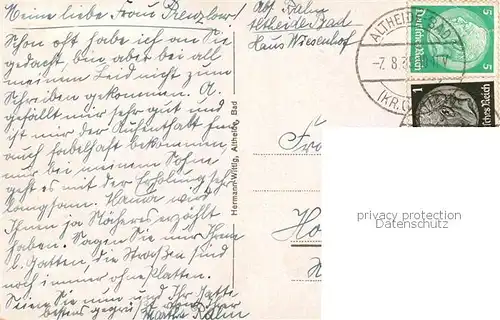 Meine liebe Frau Prenzlow!
Schon oft habe ich an Sie
gedacht, bin aber bei all
meinem Leid nicht zum
Schreiben gekommen. A.
gefällt mir sehr gut und
ist mir der Aufenthalt hier
auch fabelhaft bekommen
nur bei meinem Sohne
geht es mit der Erholung sehr
langsam. wird
Ihnen ja Näheres erzählt
haben. Sagen Sie nur Ihrem
l. Gatten, die Straßen sind
noch immer ohne Platten.
Seien Sie nun und Ihr Gatte
bestens gegrüßt von Ihrer
Martha Kalm
Abs. Kalm
Altheide Bad
Haus Wiesenhof
Hermann Wittig, Altheide, Bad
ALTHEIDE BAD
-7.8.3
(KR.G
5 5
Deutsches Reich
1
Deutsches Reich
privacy protection
Datenschutz